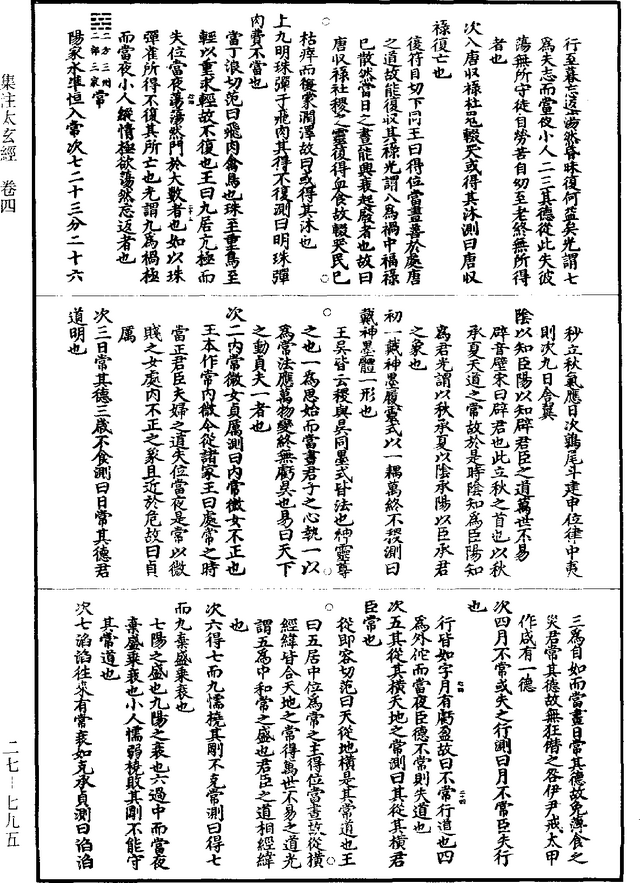 集注太玄經 卷四
二七—七九五
行至暮忘返蕩然昏昧復何益矣光謂七
爲失志而當夜小人二三其德從此失彼
蕩無所守徒自勞苦自幼至老終無所得
次八唐收祿社鬼輟哭或得其沐測曰唐收
祿復亡也
復符目切下同王曰得位當晝善於處唐
之道故能復收其祿光謂八爲禍中福祿
已散然當日之晝能興衰起廢者也故曰
唐收祿社稷之靈復得血食故輟哭民已
枯瘁而復蒙潤澤故曰或得其沐也
上九明珠彈于飛肉其得不復測曰明珠彈
肉費不當也
當丁浪切范曰飛肉禽鳥也珠至重鳥至
輕以重求輕故不復也王曰九居亢極而
失位當夜蕩蕩然鬥於大數者也如以珠
彈雀所得不復其所亡也光謂九爲禍極
而當夜小人縱情極欲蕩然忘返者也
二方三州二部三家常
陽家水準恒入常次七二十三分二十六
秒立秋氣應日次鶉尾斗建申位律中夷
則次九日舍翼
陰以知臣陽以知辟君臣之道萬世不易
辟音壁宋曰辟君也此立秋之首也以秋
承夏天道之常故於是時陰知爲臣陽知
爲君光謂以秋承夏以陰承陽以臣承君
之象也
初一戴神墨履靈式以一耦萬終不稷測曰
戴神墨體一形也
王吳皆云稷與昃同墨式皆法也神靈尊
之也一爲思始而當晝君子之心執一以
爲常法應萬物變終無虧昃也易曰天下
之動貞夫一者也
次二內常微女貞厲測曰內常微女不正也
王本作常內微今從諸家王曰處常之時
當正君臣夫婦之道失位當夜是常以微
賤之女處內不正之象且近於危故曰貞
厲
次三日常其德三歲不食測曰日常其德君
道明也
三爲自如而當晝日常其德故免薄食之
災君常其德故無狂僭之咎伊尹戒太甲
作咸有一德
次四月不常或失之行測曰月不常臣失行
也
行皆如字月有虧盈故曰不常行道也四
爲外佗而當夜臣德不常則失道也
次五其從其橫天地之常測曰其從其橫君
臣常也
從即容切范曰天從地橫是其常道也王
曰五居中位爲常之主得位當晝故從橫
經緯皆合天地之常得萬世不易之道光
謂五爲中和常之盛也君臣之道相經緯
也
次六得七而九懦撓其剛不克常測曰得七
而九棄盛乘衰也
七陽之盛也九陽之衰也六過中而當夜
棄盛乘衰也小人懦弱撓敗其剛不能守
其常道也
次七滔滔往來有常衰如克承貞測曰滔滔